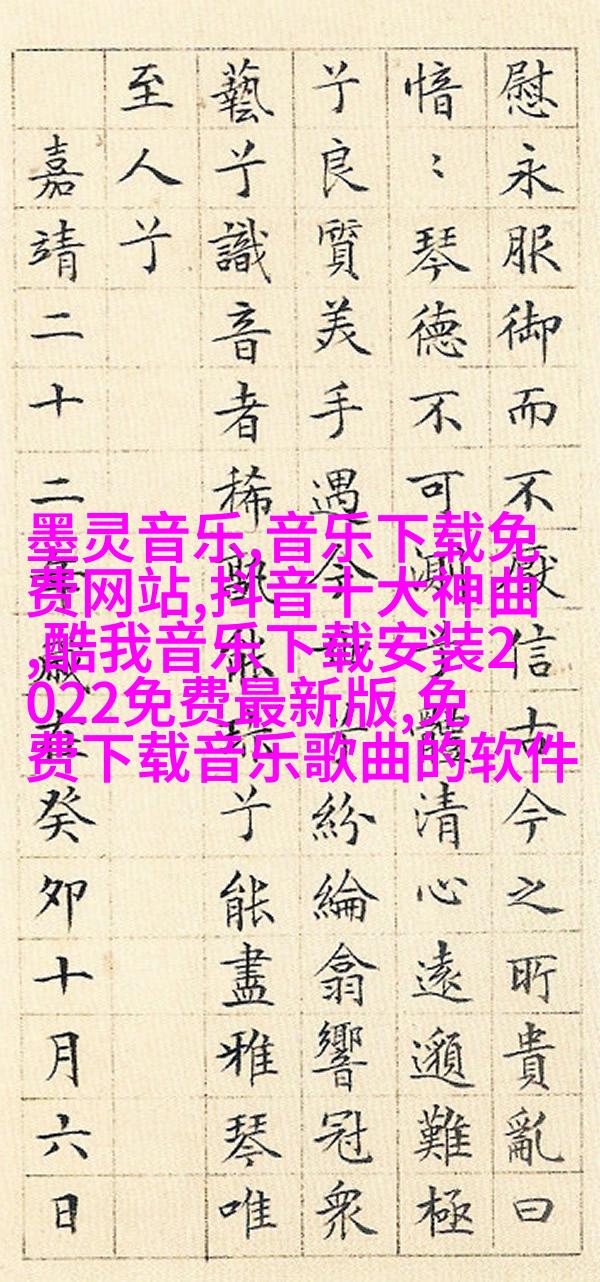 慰永服御而不猒信古今之所貴亂曰
愔〻琴德不可測兮體清心遠邈難極
兮良質美手遇今世兮紛綸翕響冠衆
藝兮識音者稀孰能珎兮能盡雅琴唯
至人兮
嘉靖二十二年歲在癸卯十月六日
墨灵音乐,音乐下载免
费网站,抖音十大神曲
,酷我音乐下载安装2
022免费最新版,免
费下载音乐歌曲的软件